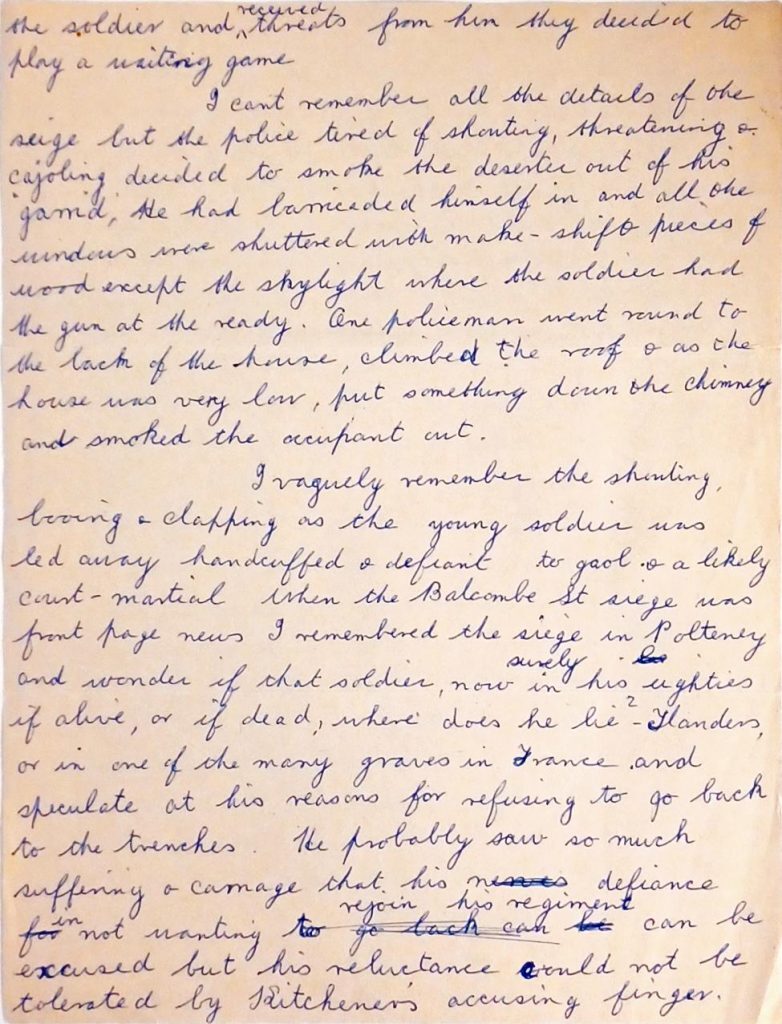 the soldier and received threats from him they decided to
play a waiting game
I cant remember all the details of the
seige but the police tired of shouting, threatening &
cajoling decided to smoke the deserter out of his
'garrid', He had barricaded himself in and all the
windows were shuttered with make-shift pieces of
wood except the skylight where the soldier had
the gun at the ready. One policeman went round to
the back of the house, climbed the roof & as the
house was very low, put something down the chimney
and smoked the occupant out.
I vaguely remember the shouting,
booing & clapping as the young soldier was
led away handcuffed & defiant to gaol & a likely
court-martial When the Balcombe St siege was
front page news I remembered the siege in Polteney
and wonder if that soldier, now surely in his eighties
if alive, or if dead, where does he lie? - Flanders,
or in one of the many graves in France and
speculate at his reasons for refusing to go back
to the trenches. He probably saw so much
suffering & carnage that his nerves defiance
for in not wanting to go back can be rejoin his regiment can be
excused but his reluctance could not be
tolerated by Kitchener's accusing finger.